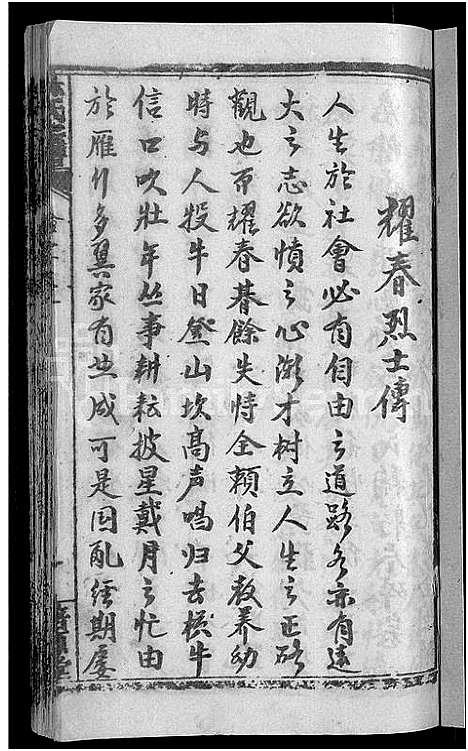 耀春烈士傳
人生於社會必有自由之道路各亦有遠
大之志欲憤之心漸才树立人生之正硌
觀也而耀春暮餘失恃全賴伯父教养幼
時与人投牛日登山坎高声唱归去横牛
信口吹壮年丛事耕耘披星戴月之忙由
於雁行多翼家有出成可是因亂经期屡